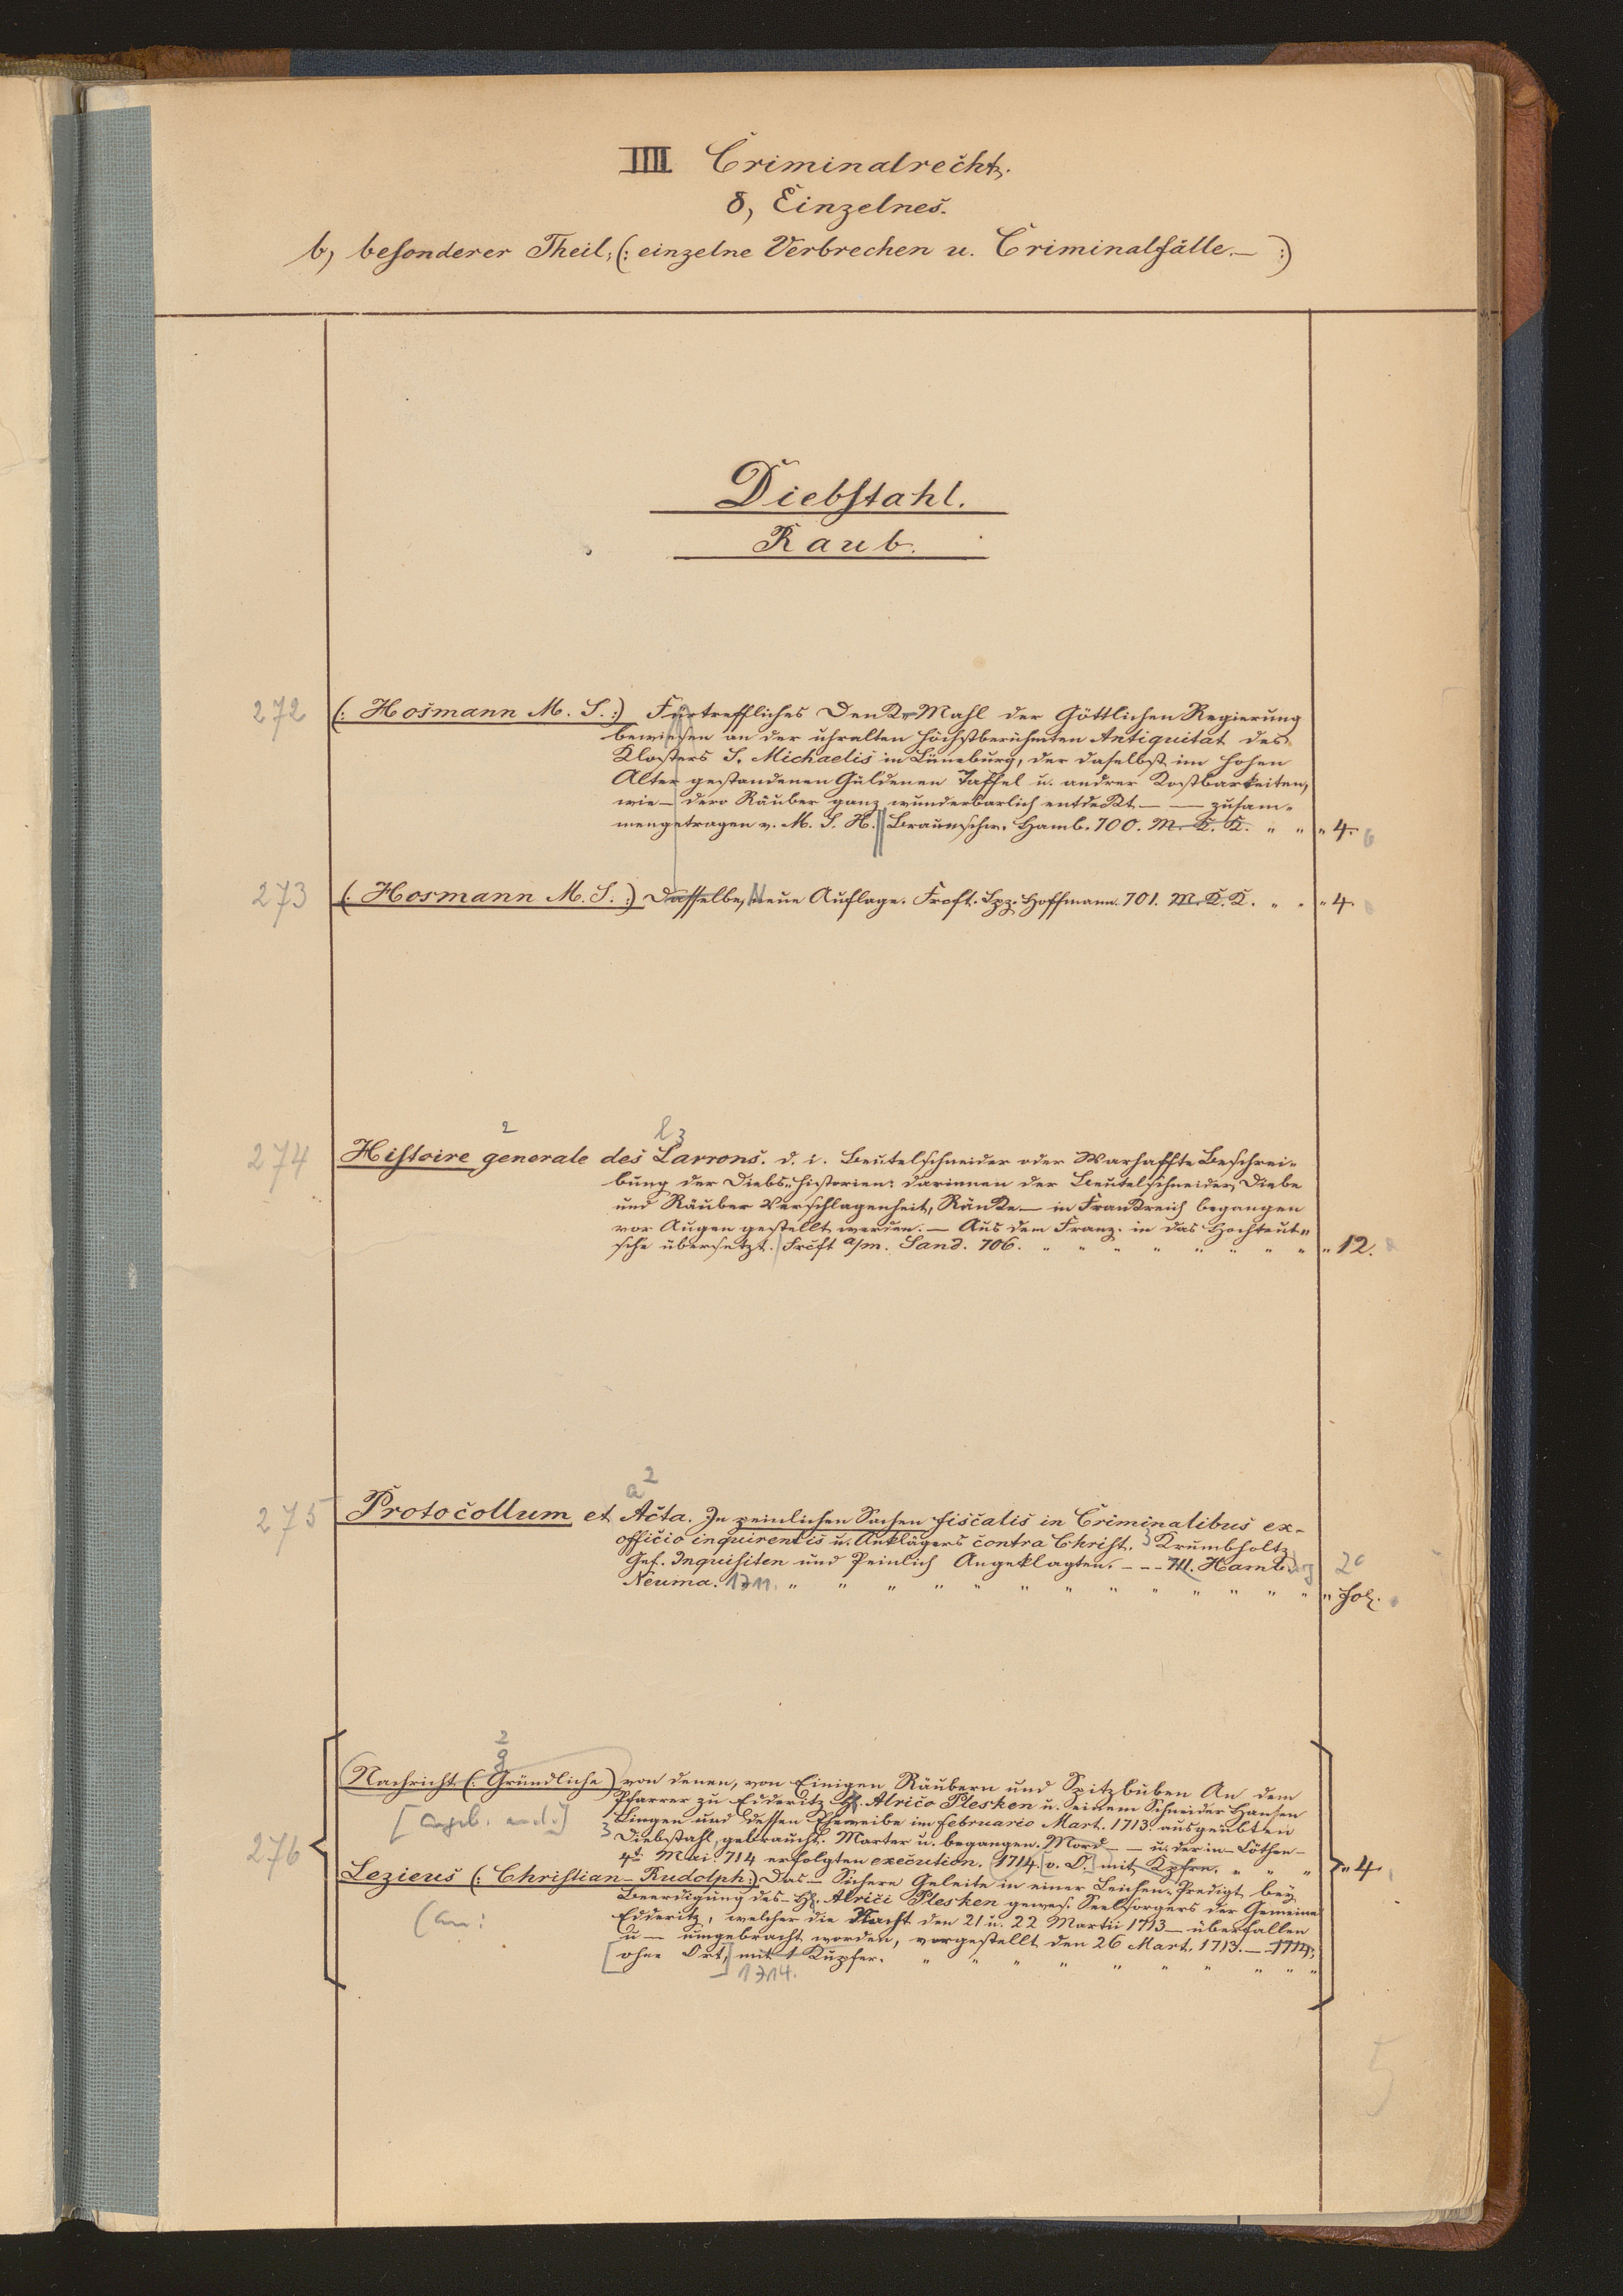 IIII Criminalrecht.
8, Einzelnes.
b, besonderer Theil, (: einzelne Verbrechen u. Criminalfälle. — :)
Diebstahl.
Raub.
272 (: Hosmann M. S. :) Fürtreffliches Denk-Mahl der Göttlichen Regierung
bewiesen an der uhralten höchstberühmten Antiquität des
Klosters S. Michaelis in Lüneburg, der daselbst im hohen
Alter gestandenen Güldenen Taffel u. andrer Kostbarkeiten,
wie — dero Räuber ganz wunderbarlich entdekt — — zusam-
mengetragen v. M. S. H. Braunschw. Hamb. 700. M. K. K. " " " 4.
273 (: Hosmann M. S. :) Dasselbe, Neue Auflage. Frcft. Lpz. Hoffmann. 701. M. K. K. " " " 4.
2 l 3
274 Histoire generale des Larrons. d. i. Beutelschneider oder Warhaffte Beschrei-
bung der Diebs-Historien: darinnen der Beutelschneider, Diebe
und Räuber Verschlagenheit, Ränke — in Frankreich begangen
vor Augen gestellt werden. — Aus dem Franz. in das Hochteut-
sche übersetzt. Frcft a/m. Sand. 706. " " " " " " " " " 12.
a 2
275 Protocollum et Acta. In peinlichen Sachen fiscalis in Criminalibus ex-
officio inquirentis u. Anklägers contra Christ. 3 Krumbholtz
Gef. Inquisiten und Peinlich Angeklagten. - - - 711. Hamburg 20
Neuma. 1711. " " " " " " " " " " " " " fol.
2
g
(Nachricht (: Gründliche) von denen, von Einigen Räubern und Spitzbuben An dem
Pfarrer zu Edderitz H. Alrico Plesken u. seinem Schneider Hansen
3 Lingen und dessen Eheweibe im Februario Mart. 1713. ausgeübten
Diebstahl, gebraucht. Marter u. begangen. Mord — — u. der in — Cöthen —
276 4t Mai 714 erfolgten execution. 1714. [o. O.] mit Kpfrn. " " " " 4.
Lezieus (: Christian — Rudolph :) Das — Sichere Geleite in einer Leichen-Predigt bey
Beerdigung des — H. Alrici Plesken gewes. Seelsorgers der Gemeine
(an: Edderitz, welcher die Nacht den 21 u. 22 Martii 1713 — überfallen
u — umgebracht worden, vorgestellt den 26 Mart. 1713. — 1714,
[ohne Ort,] mit 1 Kupfer. " " " " " " " " "
1714.
5